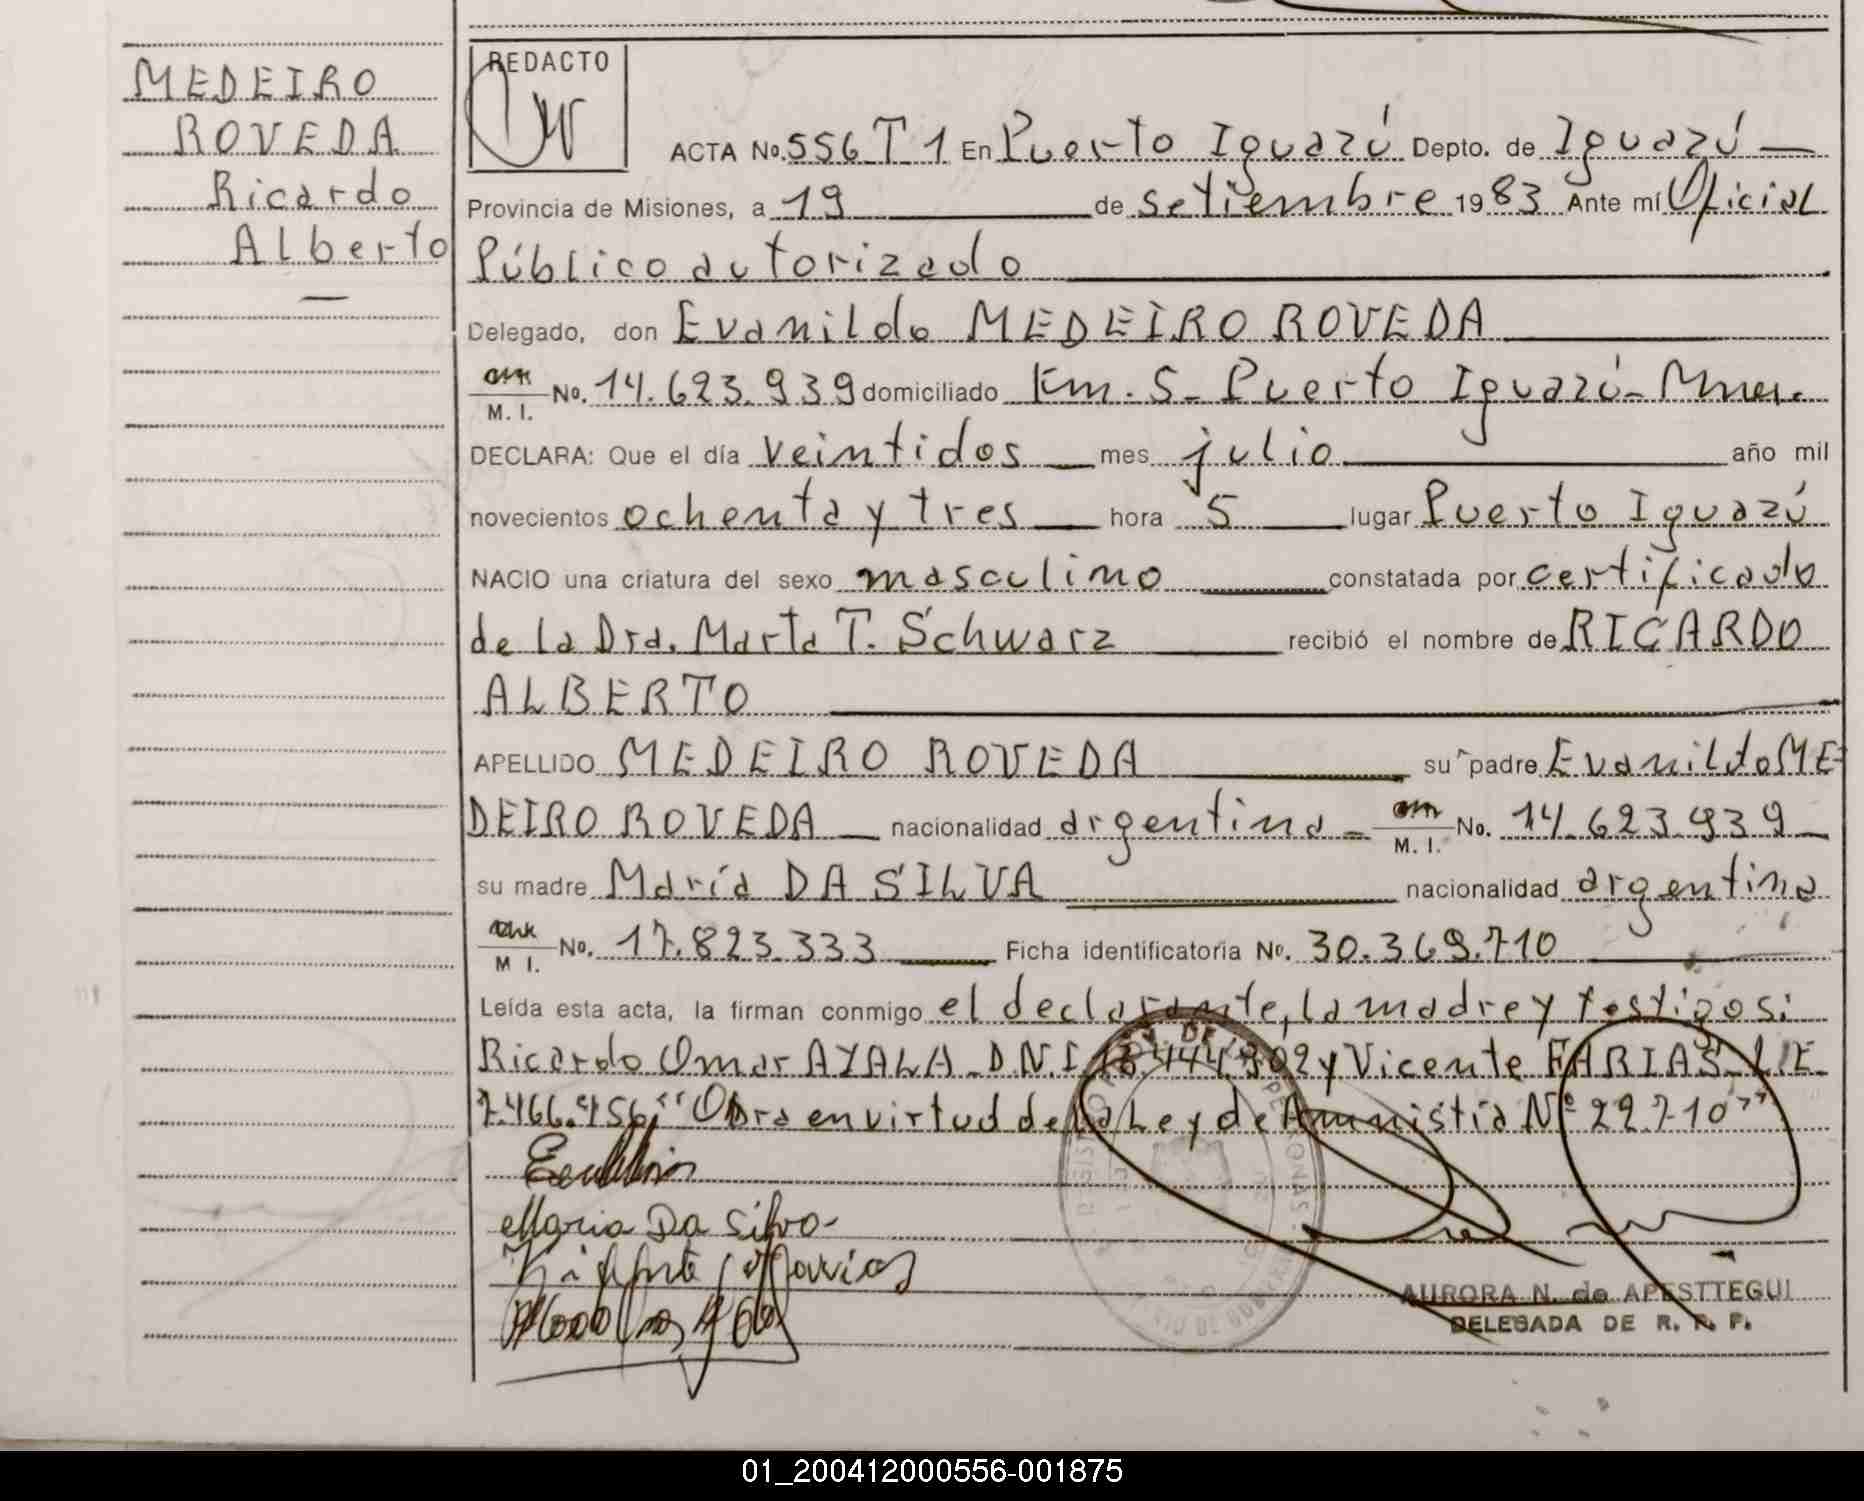 MEDEIRO
ROVEDA
Ricardo
Alberto
REDACTO
ACTA No. 556 T 1 En Puerto Iguazú Depto. de Iguazú
Provincia de Misiones, a 19 de setiembre 1983 Ante mí Oficial
Público autorizado
Delegado, don Evanildo MEDEIRO ROVEDA
M. I. No. 14.623.939 domiciliado Km. 5 - Puerto Iguazú -
DECLARA: Que el día veintidos mes julio año mil
novecientos ochenta y tres hora 5 lugar Puerto Iguazú
NACIO una criatura del sexo masculino constatada por certificado
de la Dra. Marta T. Schwarz recibió el nombre de RICARDO
ALBERTO
APELLIDO MEDEIRO ROVEDA su padre Evanildo ME-
DEIRO ROVEDA nacionalidad argentina - M. I. No. 14.623.939
su madre María DA SILVA nacionalidad argentina
M I. No. 17.823.333 Ficha identificatoria No. 30.369.710
Leída esta acta, la firman conmigo el declarante, la madre y testigos:
Ricardo Omar AYALA - D.N.I. y Vicente FARIAS - L.E.
7.466.456; "Obra en virtud de la Ley de Amnistia Nº 22.710"
Maria Da Silva
AURORA N. de APESTTEGUI
DELEGADA DE R. P. P.
01_200412000556-001875